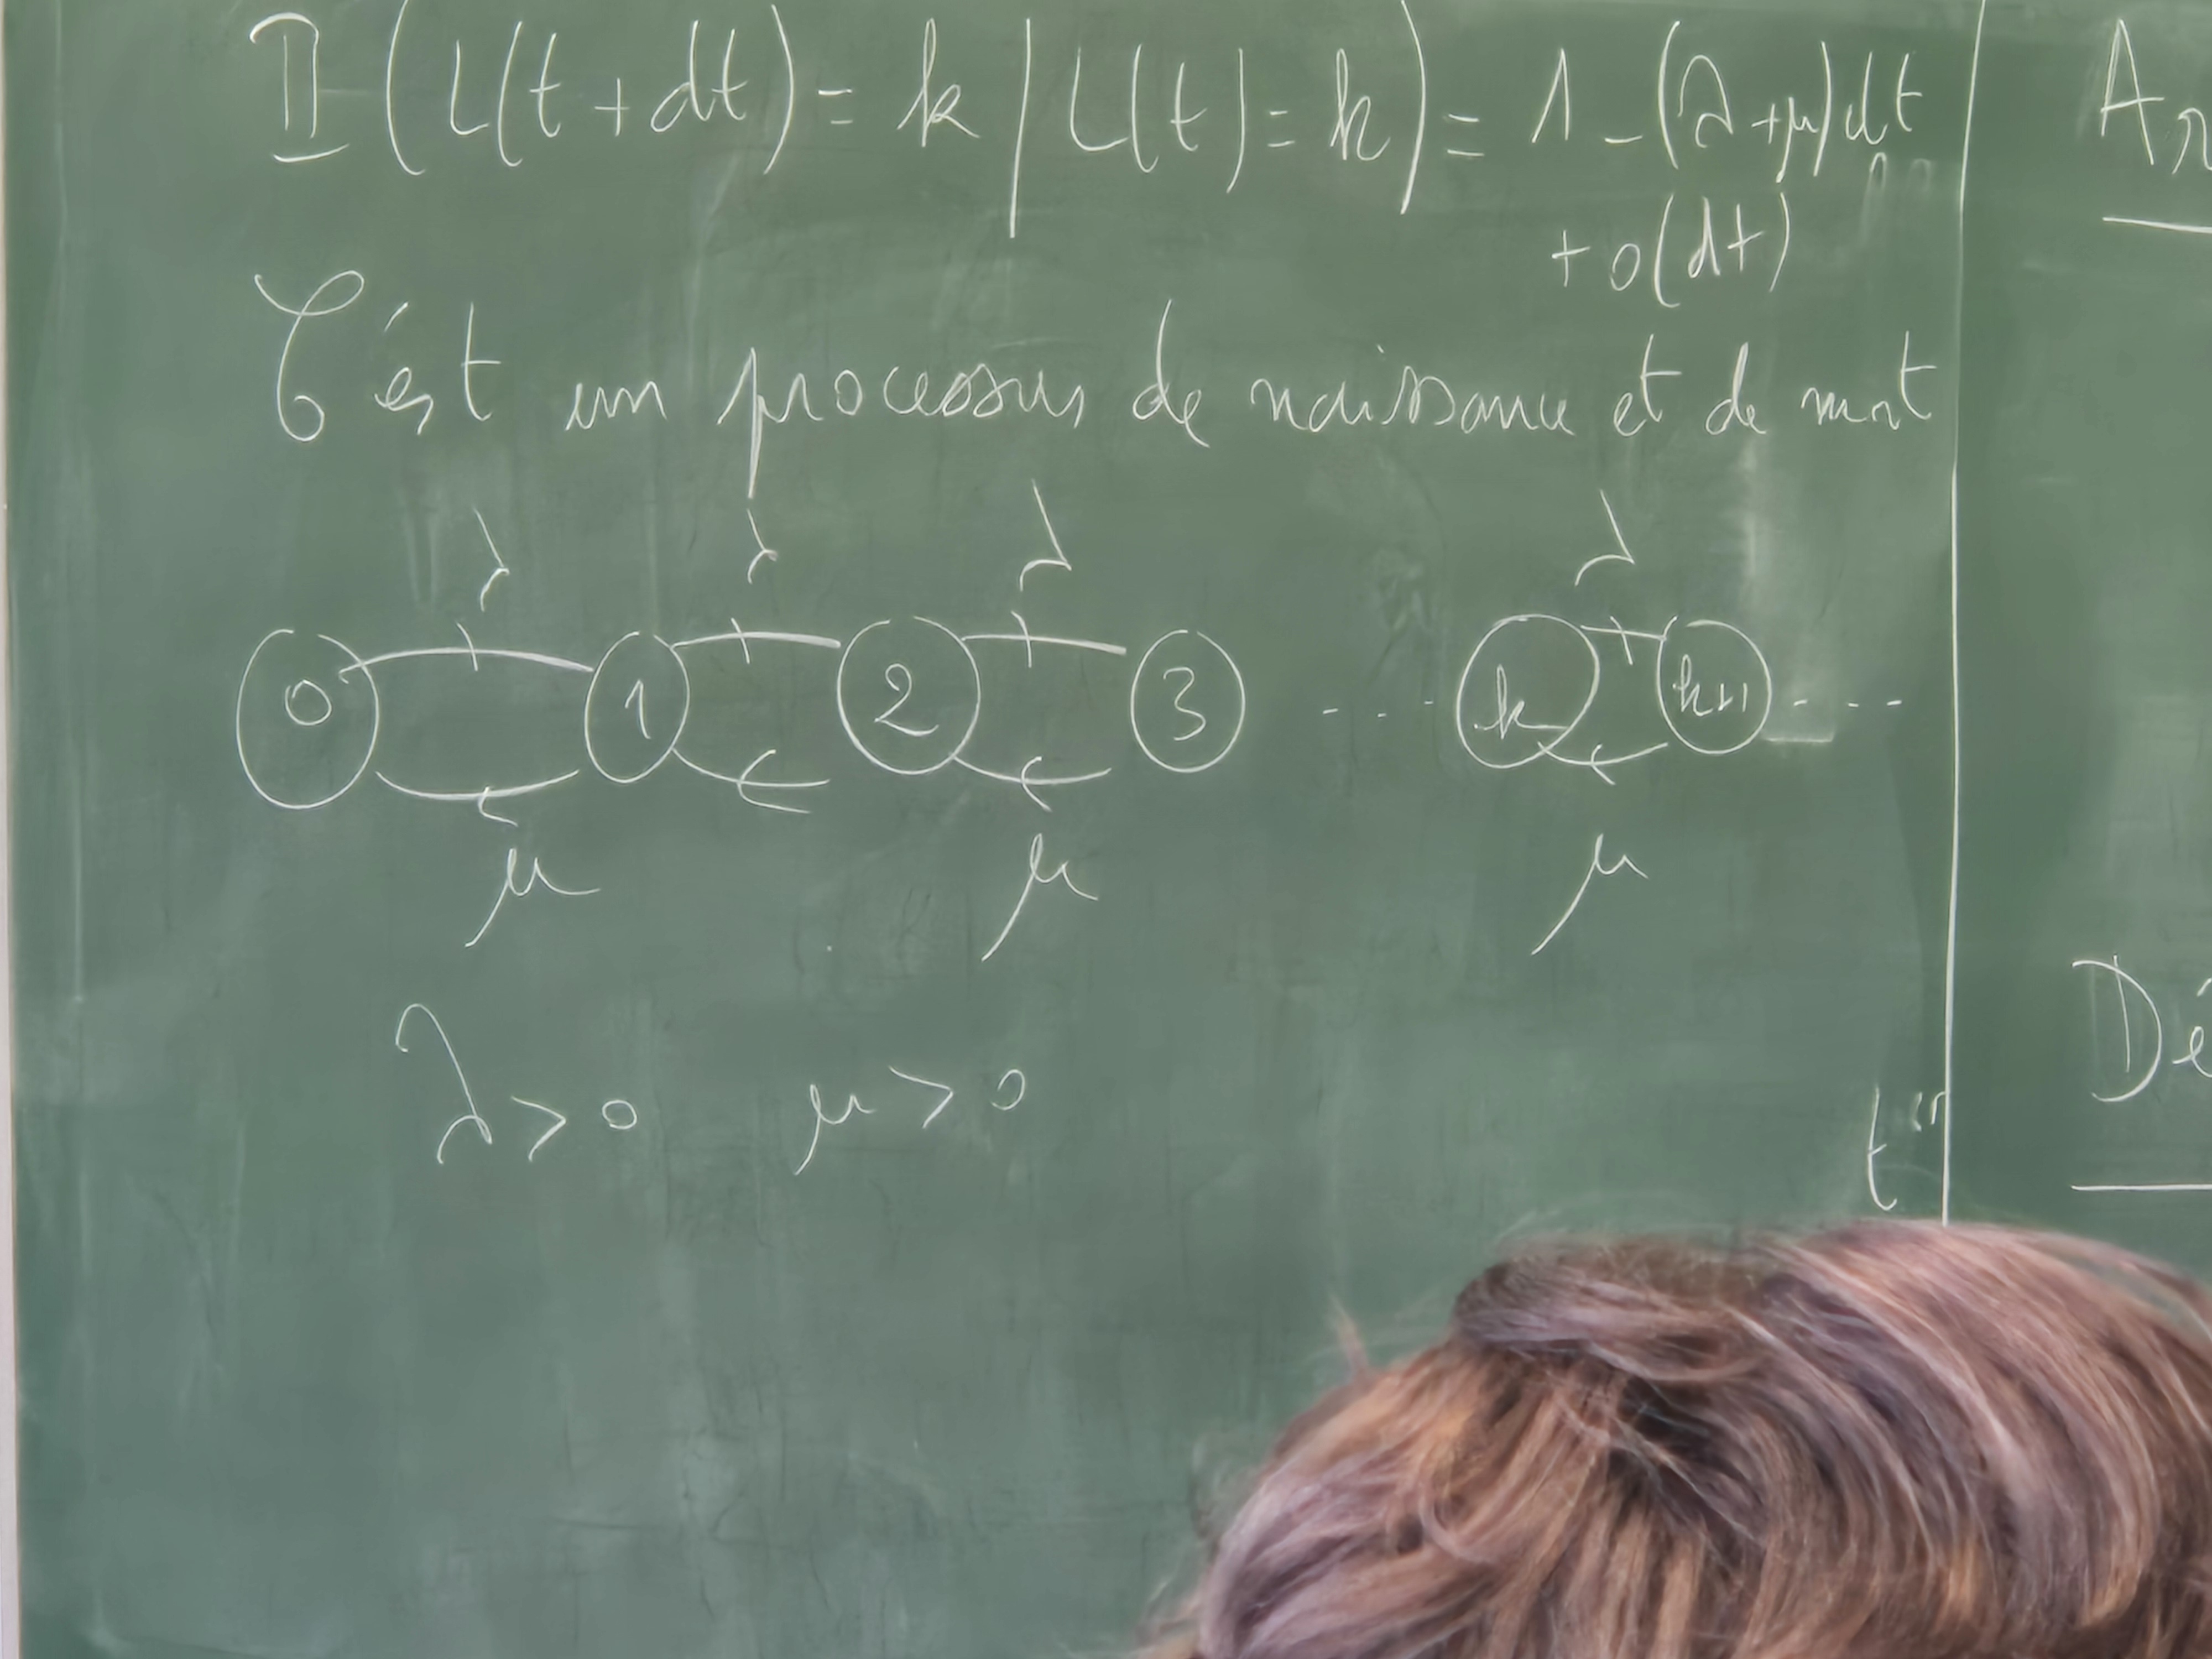 ℙ(L(t+dt) = k | L(t) = k) = 1 - (λ+μ)dt
+ o(dt)
C'est un processus de naissance et de mort
λ λ λ λ
0 1 2 3 ... k k+1 ...
μ μ μ
λ > 0 μ > 0
Dé